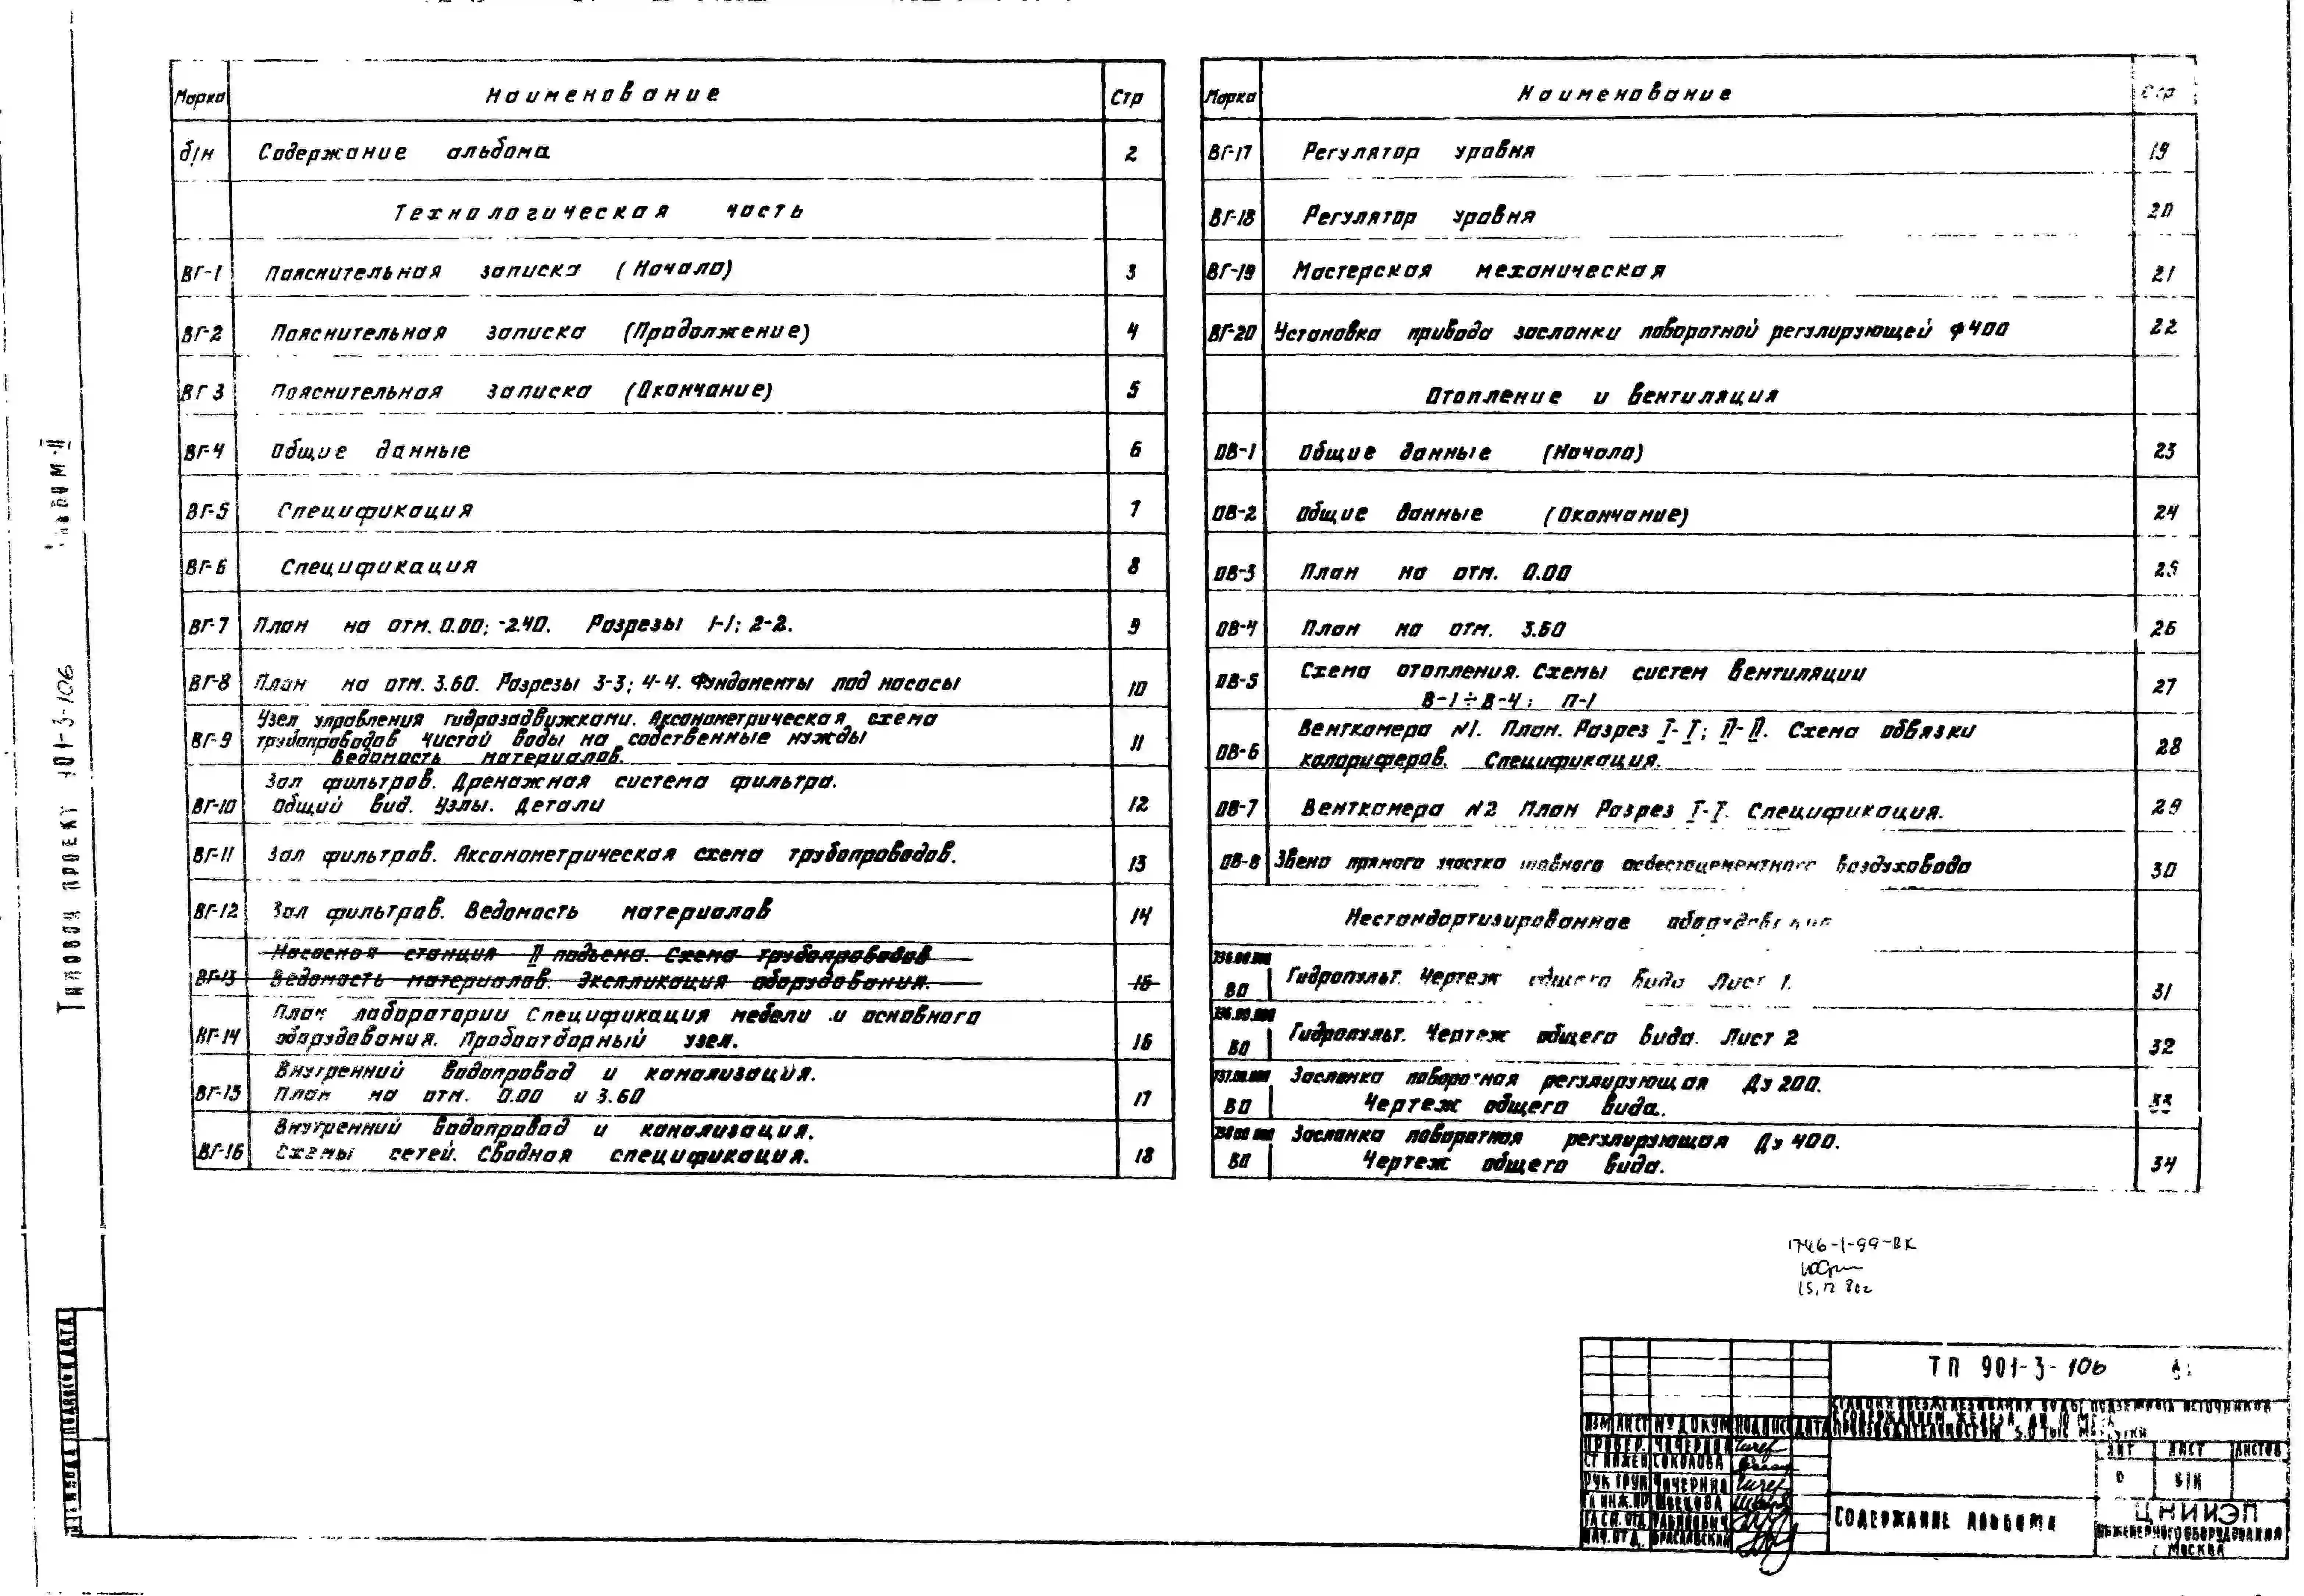 Марка Наименование Стр
б/н Содержание альбома 2
Технологическая часть
ВГ-1 Пояснительная записка (Начало) 3
ВГ-2 Пояснительная записка (Продолжение) 4
ВГ 3 Пояснительная записка (Окончание) 5
ВГ-4 Общие данные 6
ВГ-5 Спецификация 7
ВГ-6 Спецификация 8
ВГ-7 План на отм. 0.00; -2.40. Разрезы 1-1; 2-2. 9
ВГ-8 План на отм. 3.60. Разрезы 3-3; 4-4. Фундаменты под насосы 10
Узел управления гидрозадвижками. Аксонометрическая схема
ВГ-9 трубопроводов чистой воды на собственные нужды 11
Ведомость материалов.
Зал фильтров. Дренажная система фильтра.
ВГ-10 Общий вид. Узлы. Детали 12
ВГ-11 Зал фильтров. Аксонометрическая схема трубопроводов. 13
ВГ-12 Зал фильтров. Ведомость материалов 14
Насосная станция II подъема. Схема трубопроводов
ВГ-13 Ведомость материалов. Экспликация оборудования. 15
План лаборатории Спецификация мебели и основного
ВГ-14 оборудования. Пробоотборный узел. 16
Внутренний водопровод и канализация.
ВГ-15 План на отм. 0.00 и 3.60 17
Внутренний водопровод и канализация.
ВГ-16 Схемы сетей. Сводная спецификация. 18
Марка Наименование Стр
ВГ-17 Регулятор уровня 19
ВГ-18 Регулятор уровня 20
ВГ-19 Мастерская механическая 21
ВГ-20 Установка привода заслонки поворотной регулирующей ф400 22
Отопление и вентиляция
ОВ-1 Общие данные (Начало) 23
ОВ-2 Общие данные (Окончание) 24
ОВ-3 План на отм. 0.00 25
ОВ-4 План на отм. 3.60 26
ОВ-5 Схема отопления. Схемы систем вентиляции 27
В-1÷В-4; П-1
Венткамера №1. План. Разрез I-I; II-II. Схема обвязки
ОВ-6 калориферов. Спецификация. 28
ОВ-7 Венткамера №2 План Разрез I-I. Спецификация. 29
ОВ-8 Звено прямого участка шовного асбестоцементного воздуховода 30
Нестандартизированное оборудование
736.00.000
ВО Гидропульт. Чертеж общего вида Лист 1. 31
736.00.000
ВО Гидропульт. Чертеж общего вида. Лист 2 32
737.00.000 Заслонка поворотная регулирующая Ду 200.
ВО Чертеж общего вида. 33
738 00 000 Заслонка поворотная регулирующая Ду 400.
ВО Чертеж общего вида. 34
Типовой проект 901-3-106 Альбом II
1746-1-99-ВК
ТП 901-3-106
Станция обезжелезивания воды подземных источников
с содержанием железа до 10 мг/л
производительностью 5.0 тыс м³/сутки
Изм Лист № докум Подпис Дата
Провер. Чичерина
Ст инжен Соколова
Рук груп Чичерина
Гл инж. пр Швецова
Гл сп. отд. Рабинович
Нач. отд. Браславский
Лит Лист Листов
Р б/н
Содержание альбома
ЦНИИЭП
инженерного оборудования
г Москва